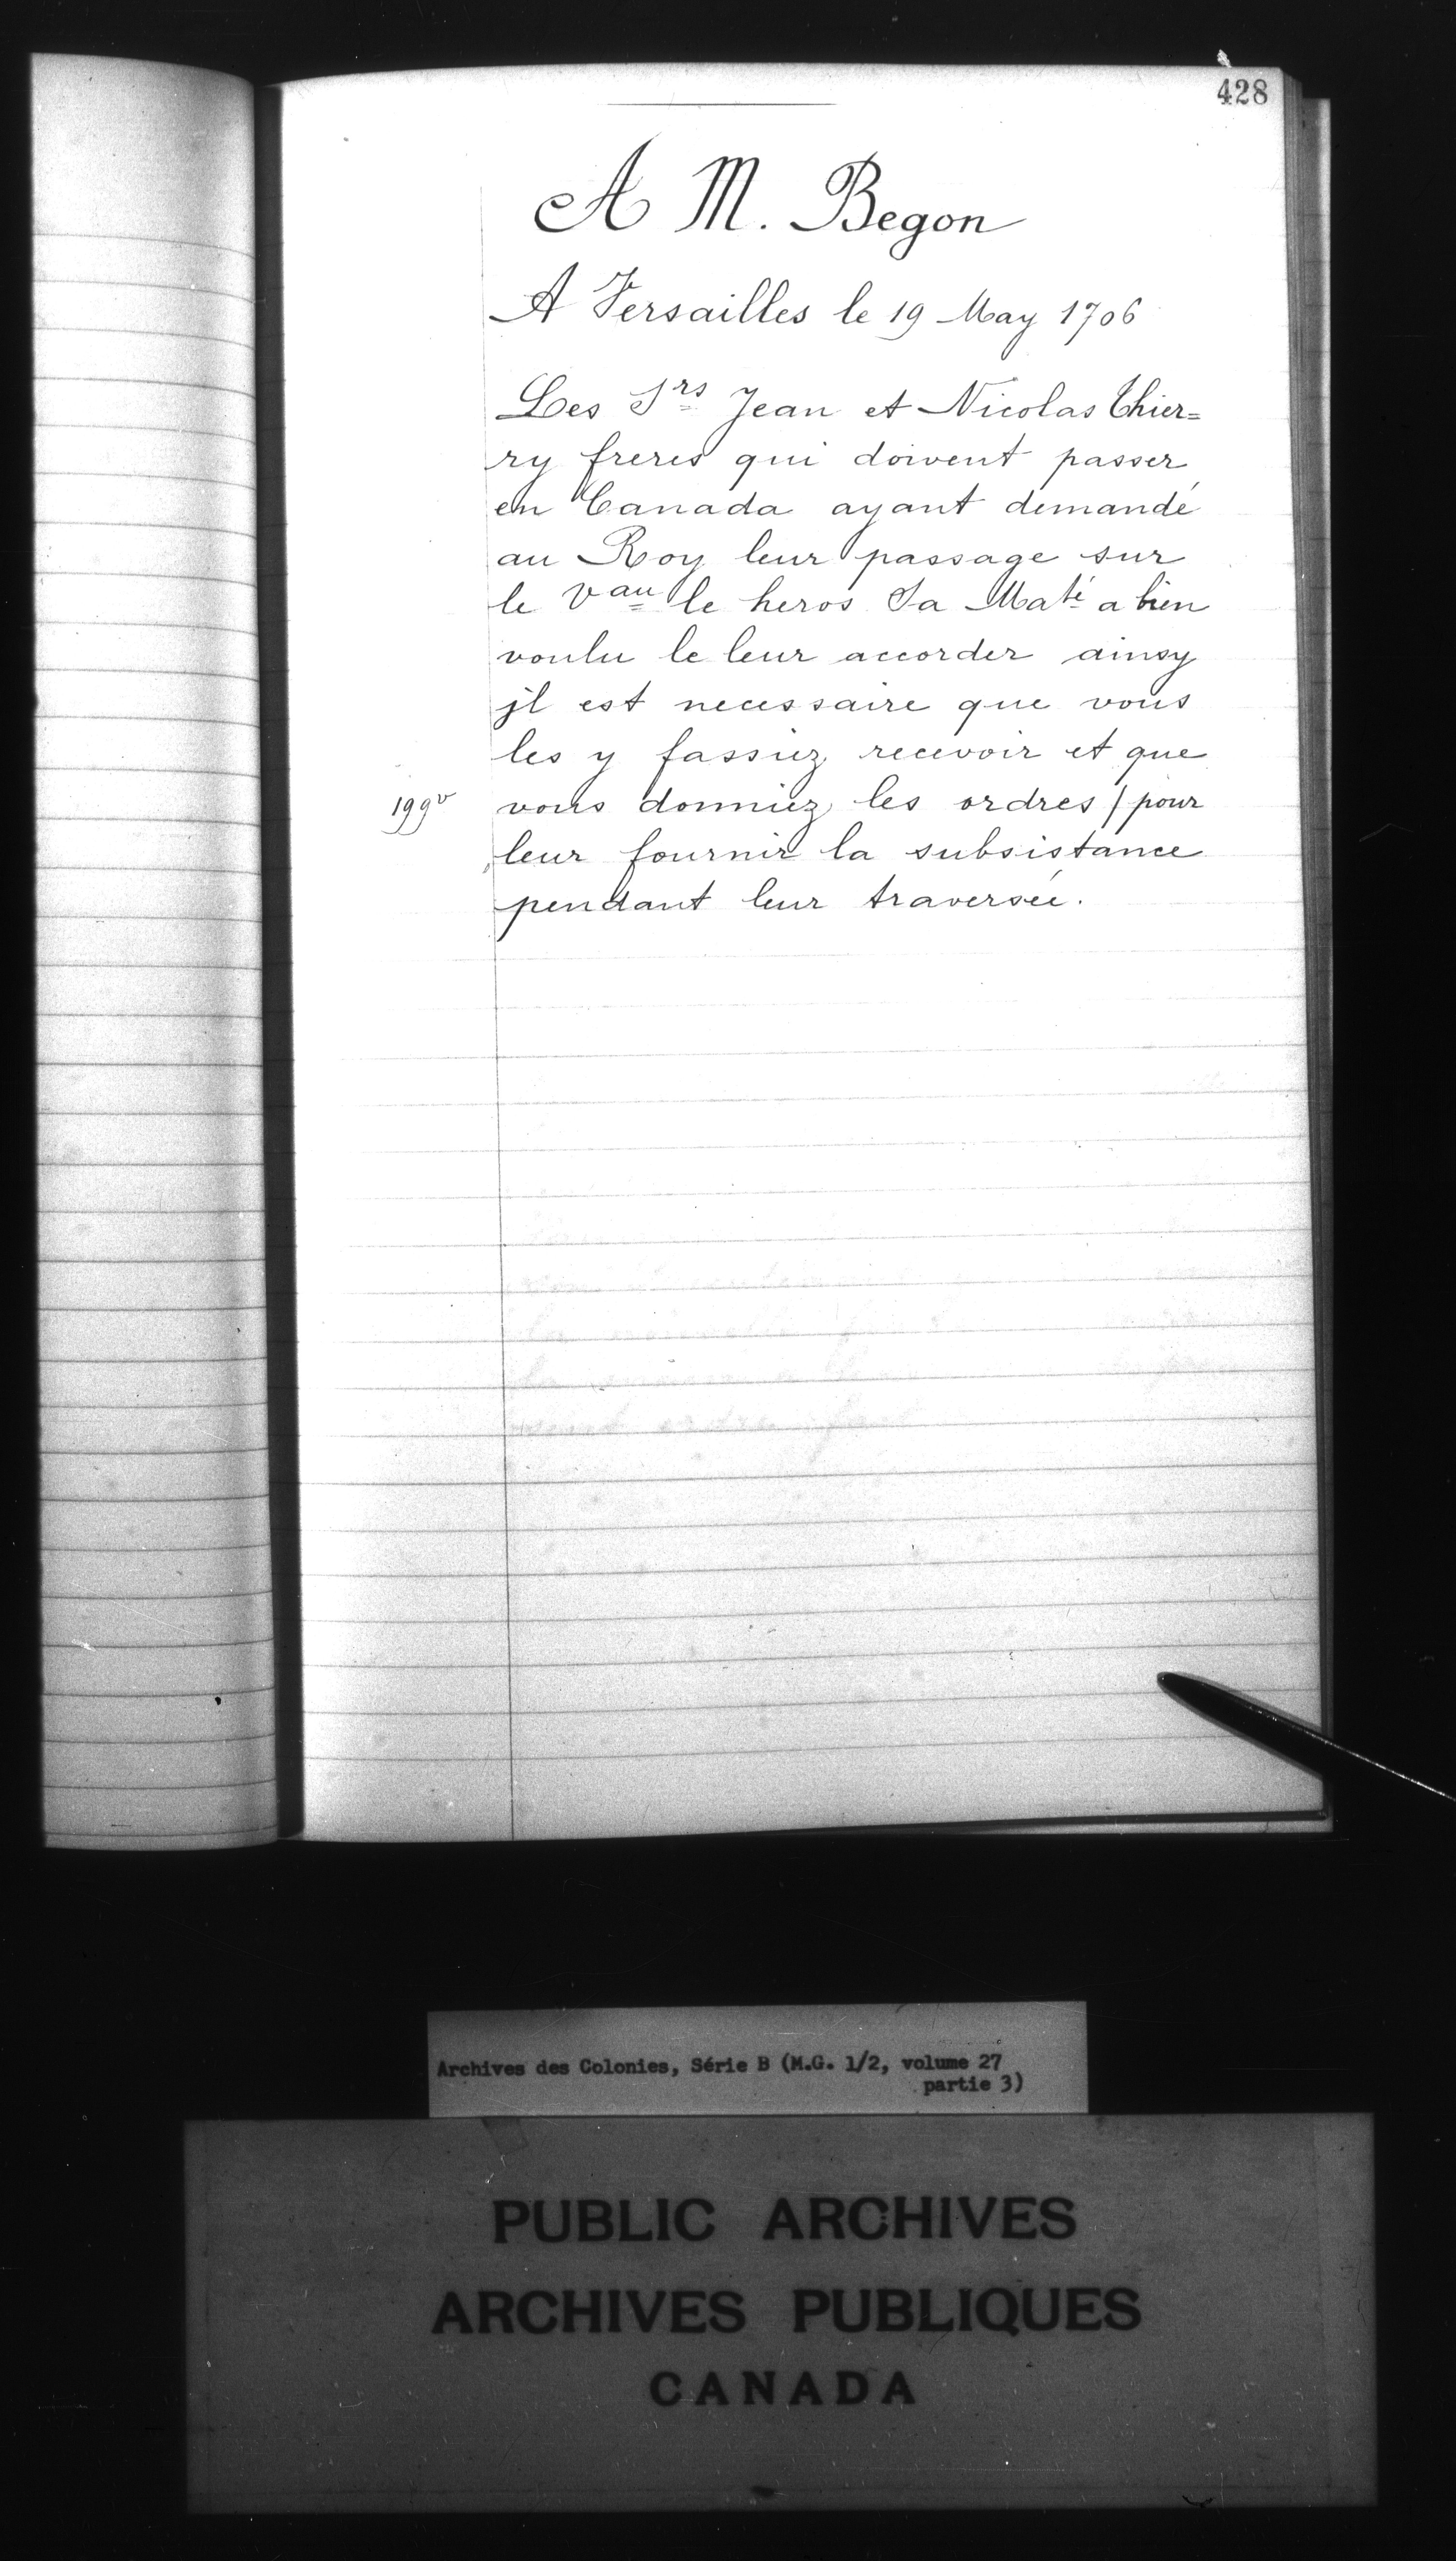 428
A M. Begon
A Versailles le 19 May 1706
Les Srs Jean et Nicolas Thier=
ry freres qui doivent passer
en Canada ayant demandé
au Roy leur passage sur
le Vau le heros Sa Maté a bien
voulu le leur accorder ainsy
jl est necessaire que vous
les y fassiez recevoir et que
199v vous donniez les ordres / pour
leur fournir la subsistance
pendant leur traversée.
Archives des Colonies, Série B (M.G. 1/2, volume 27
partie 3)
PUBLIC ARCHIVES
ARCHIVES PUBLIQUES
CANADA